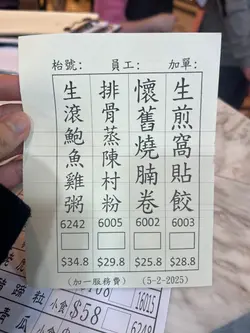 枱號: 員工: 加單:
生煎窩貼餃
6003
$28.8
懷舊燒腩卷
6002
$25.8
排骨蒸陳村粉
6005
$29.8
生滾鮑魚雞粥
6242
$34.8
(加一服務費) (5-2-2025)
16015
小食
$58
6248
小食